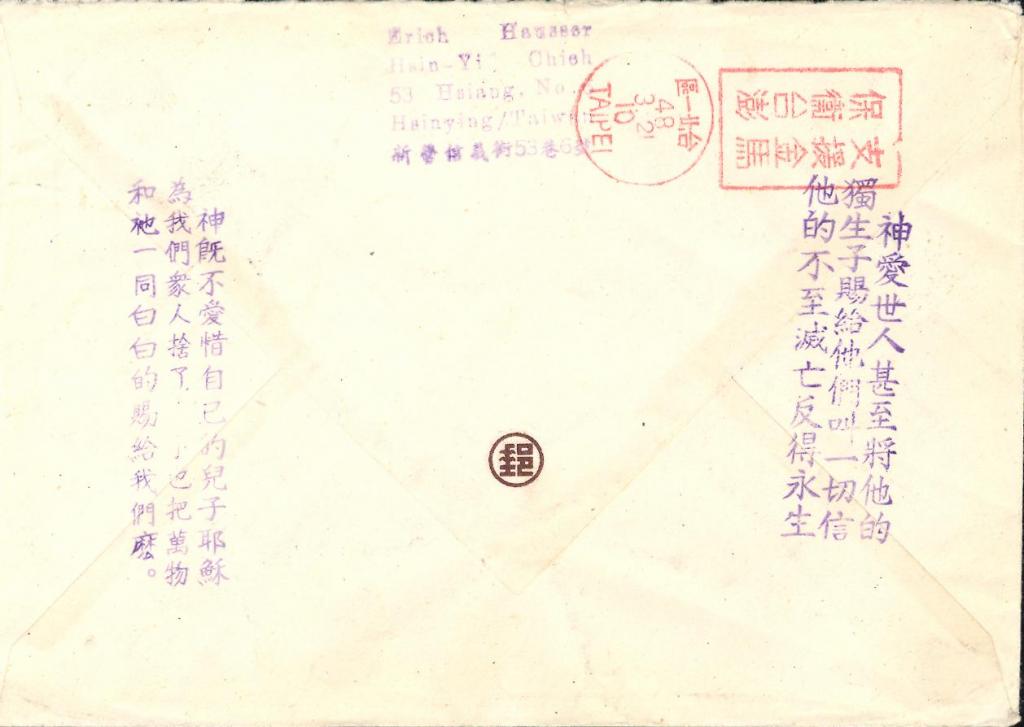 Erich
Hsin-Yi Chieh
53 Hsiang, No.
Hsinying/Taiwan
新營信義街53巷6號
台北一區
48
3 21
10
TAIPEI
支援金馬
保衛台澎
神愛世人甚至將他的
獨生子賜給他們叫一切信
他的不至滅亡反得永生
郵
神既不愛惜自己的兒子耶穌
為我們眾人捨了 也把萬物
和祂一同白白的賜給我們麼。